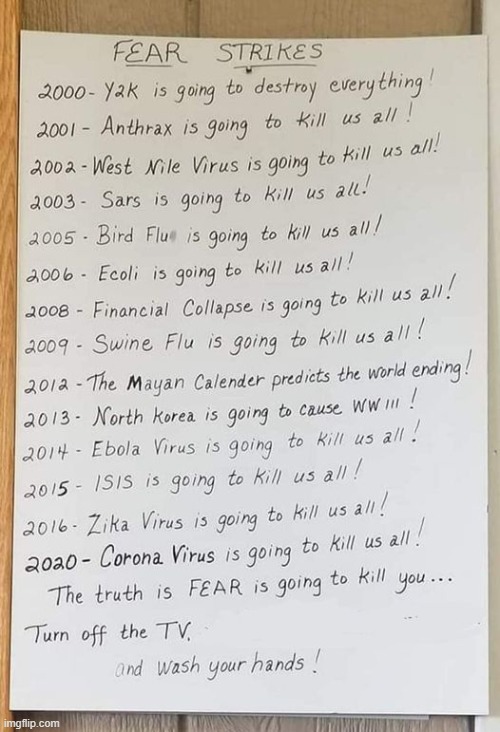 FEAR STRIKES
2000- Y2K is going to destroy everything!
2001 - Anthrax is going to kill us all!
2002 - West Nile Virus is going to kill us all!
2003 - Sars is going to kill us all!
2005 - Bird Flu is going to kill us all!
2006 - Ecoli is going to kill us all!
2008 - Financial Collapse is going to kill us all!
2009 - Swine Flu is going to kill us all!
2012 - The Mayan Calender predicts the world ending!
2013 - North Korea is going to cause WW III!
2014 - Ebola Virus is going to kill us all!
2015 - ISIS is going to kill us all!
2016 - Zika Virus is going to kill us all!
2020 - Corona Virus is going to kill us all!
The truth is FEAR is going to kill you...
Turn off the TV.
and wash your hands!
imgflip.com